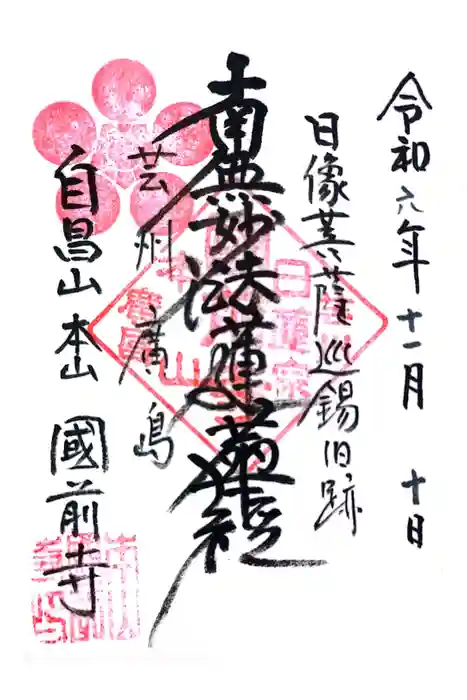 令和六年十一月 十日
日像菩薩巡錫旧跡
南無妙法蓮華経
芸州廣島
自昌山 本山 國前寺
日蓮宗